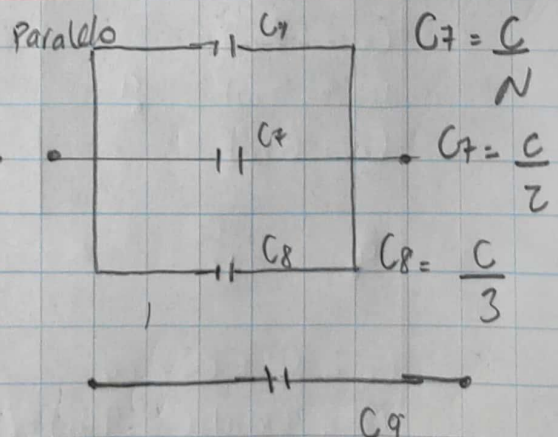 Paralelo
C4
C7 = C/N
C7
C7 = C/2
C8
C8 = C/3
C9